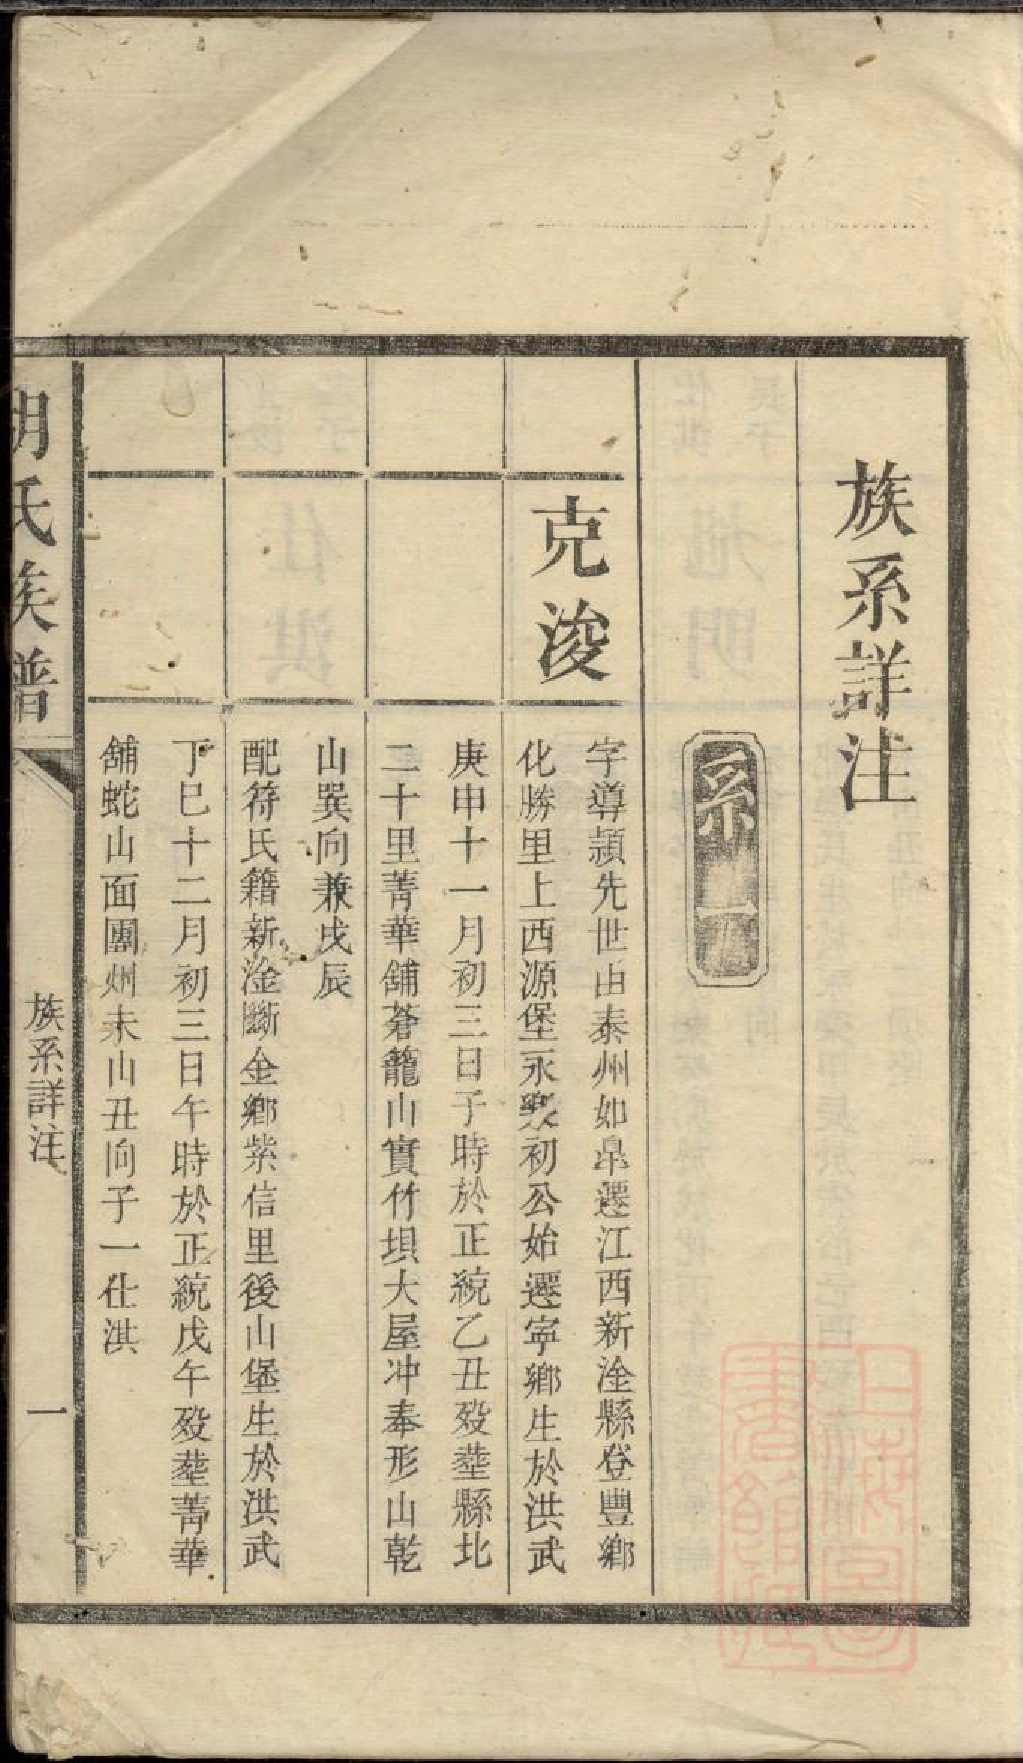 族系詳注
系一
克浚
字導頴先世由泰州如臯遷江西新淦縣登豐鄉
化勝里上西源堡永樂初公始遷寧鄉生於洪武
庚申十一月初三日子時於正統乙丑歿塟縣北
二十里菁華舖蒼籠山實竹垻大屋冲奉形山乾
山巽向兼戌辰
配符氏籍新淦斷金鄉紫信里後山堡生於洪武
丁巳十二月初三日午時於正統戊午歿塟菁華
舖蛇山面團州未山丑向子一仕淇
胡氏族譜
族系詳注
一
上海圖書館藏